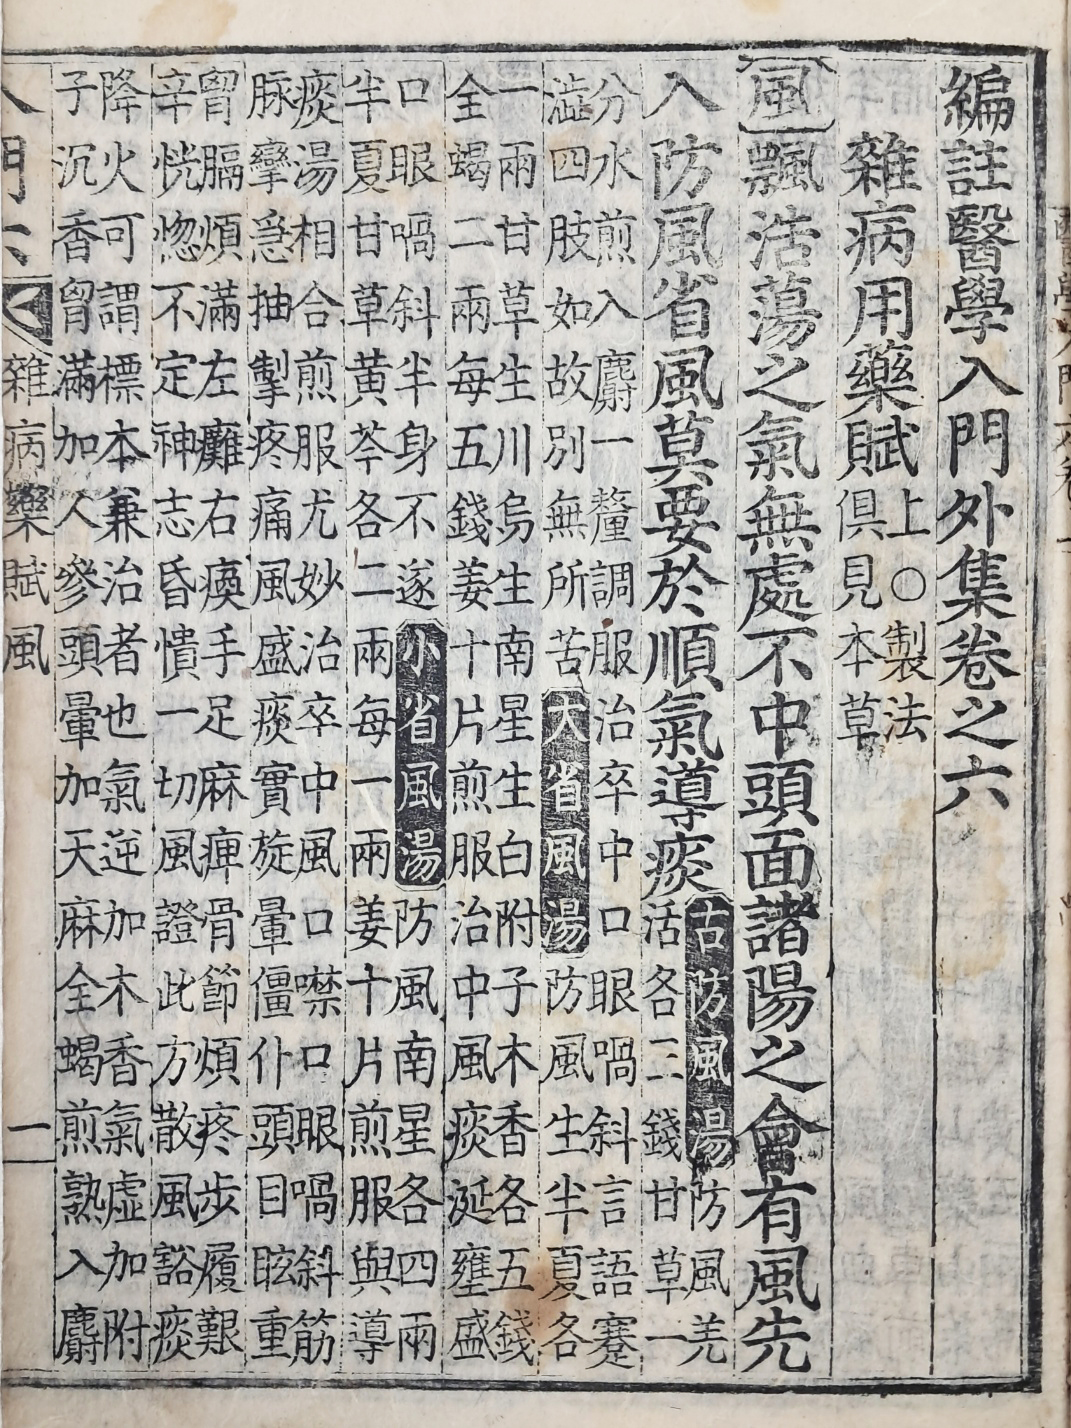 編註醫學入門外集卷之六
雜病用藥賦上○製法
俱見本草
風飄活蕩之氣無處不中頭面諸陽之會有風先
入防風省風莫要於順氣導痰古防風湯防風羌
活各三錢甘草一
分水煎入麝一釐調服治卒中口眼喎斜言語蹇
澁四肢如故別無所苦大省風湯防風生半夏各
一兩甘草生川烏生南星生白附子木香各五錢
全蝎二兩每五錢姜十片煎服治中風痰涎壅盛
口眼喎斜半身不遂小省風湯防風南星各四兩
半夏甘草黃芩各二兩每一兩姜十片煎服與導
痰湯相合煎服尤妙治卒中風口噤口眼喎斜筋
脉攣急抽掣疼痛風盛痰實旋暈僵仆頭目眩重
胷膈煩滿左癱右瘓手足麻痺骨節煩疼步履艱
辛恍惚不定神志昏憒一切風證此方散風豁痰
降火可謂標本兼治者也氣逆加木香氣虛加附
子沉香胷滿加人參頭暈加天麻全蝎煎熟入麝
入門六 雜病藥賦風 一